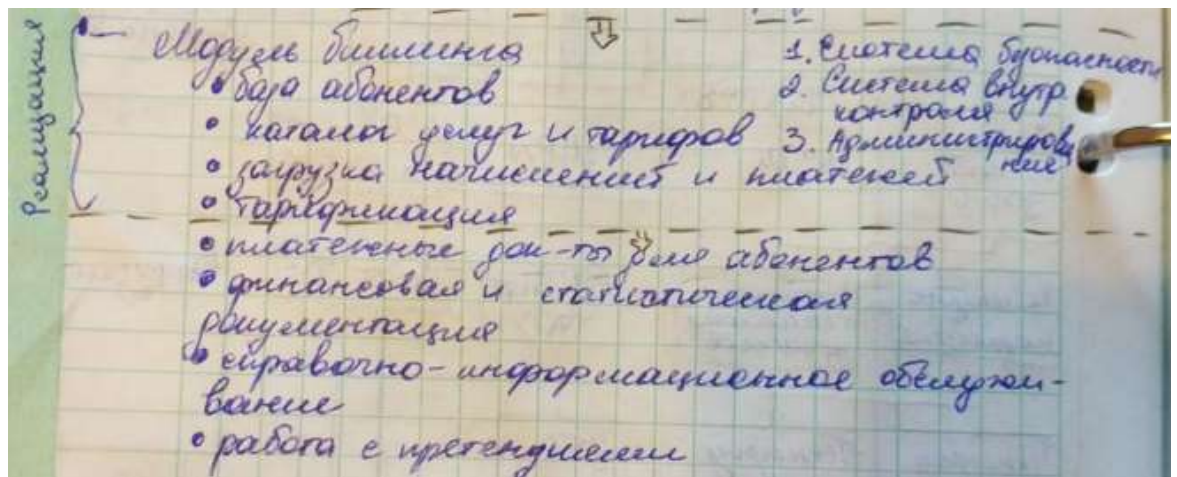 Реализация
Модуль биллинга
• база абонентов
• каталог услуг и тарифов
• загрузка начислений и платежей
• тарификация
• платежные док-ты для абонентов
• финансовая и статистическая
документация
• справочно-информационное обслужи-
вание
• работа с претензиями
1. Система безопасности
2. Система внутр.
контроля
3. Администрирова
ние